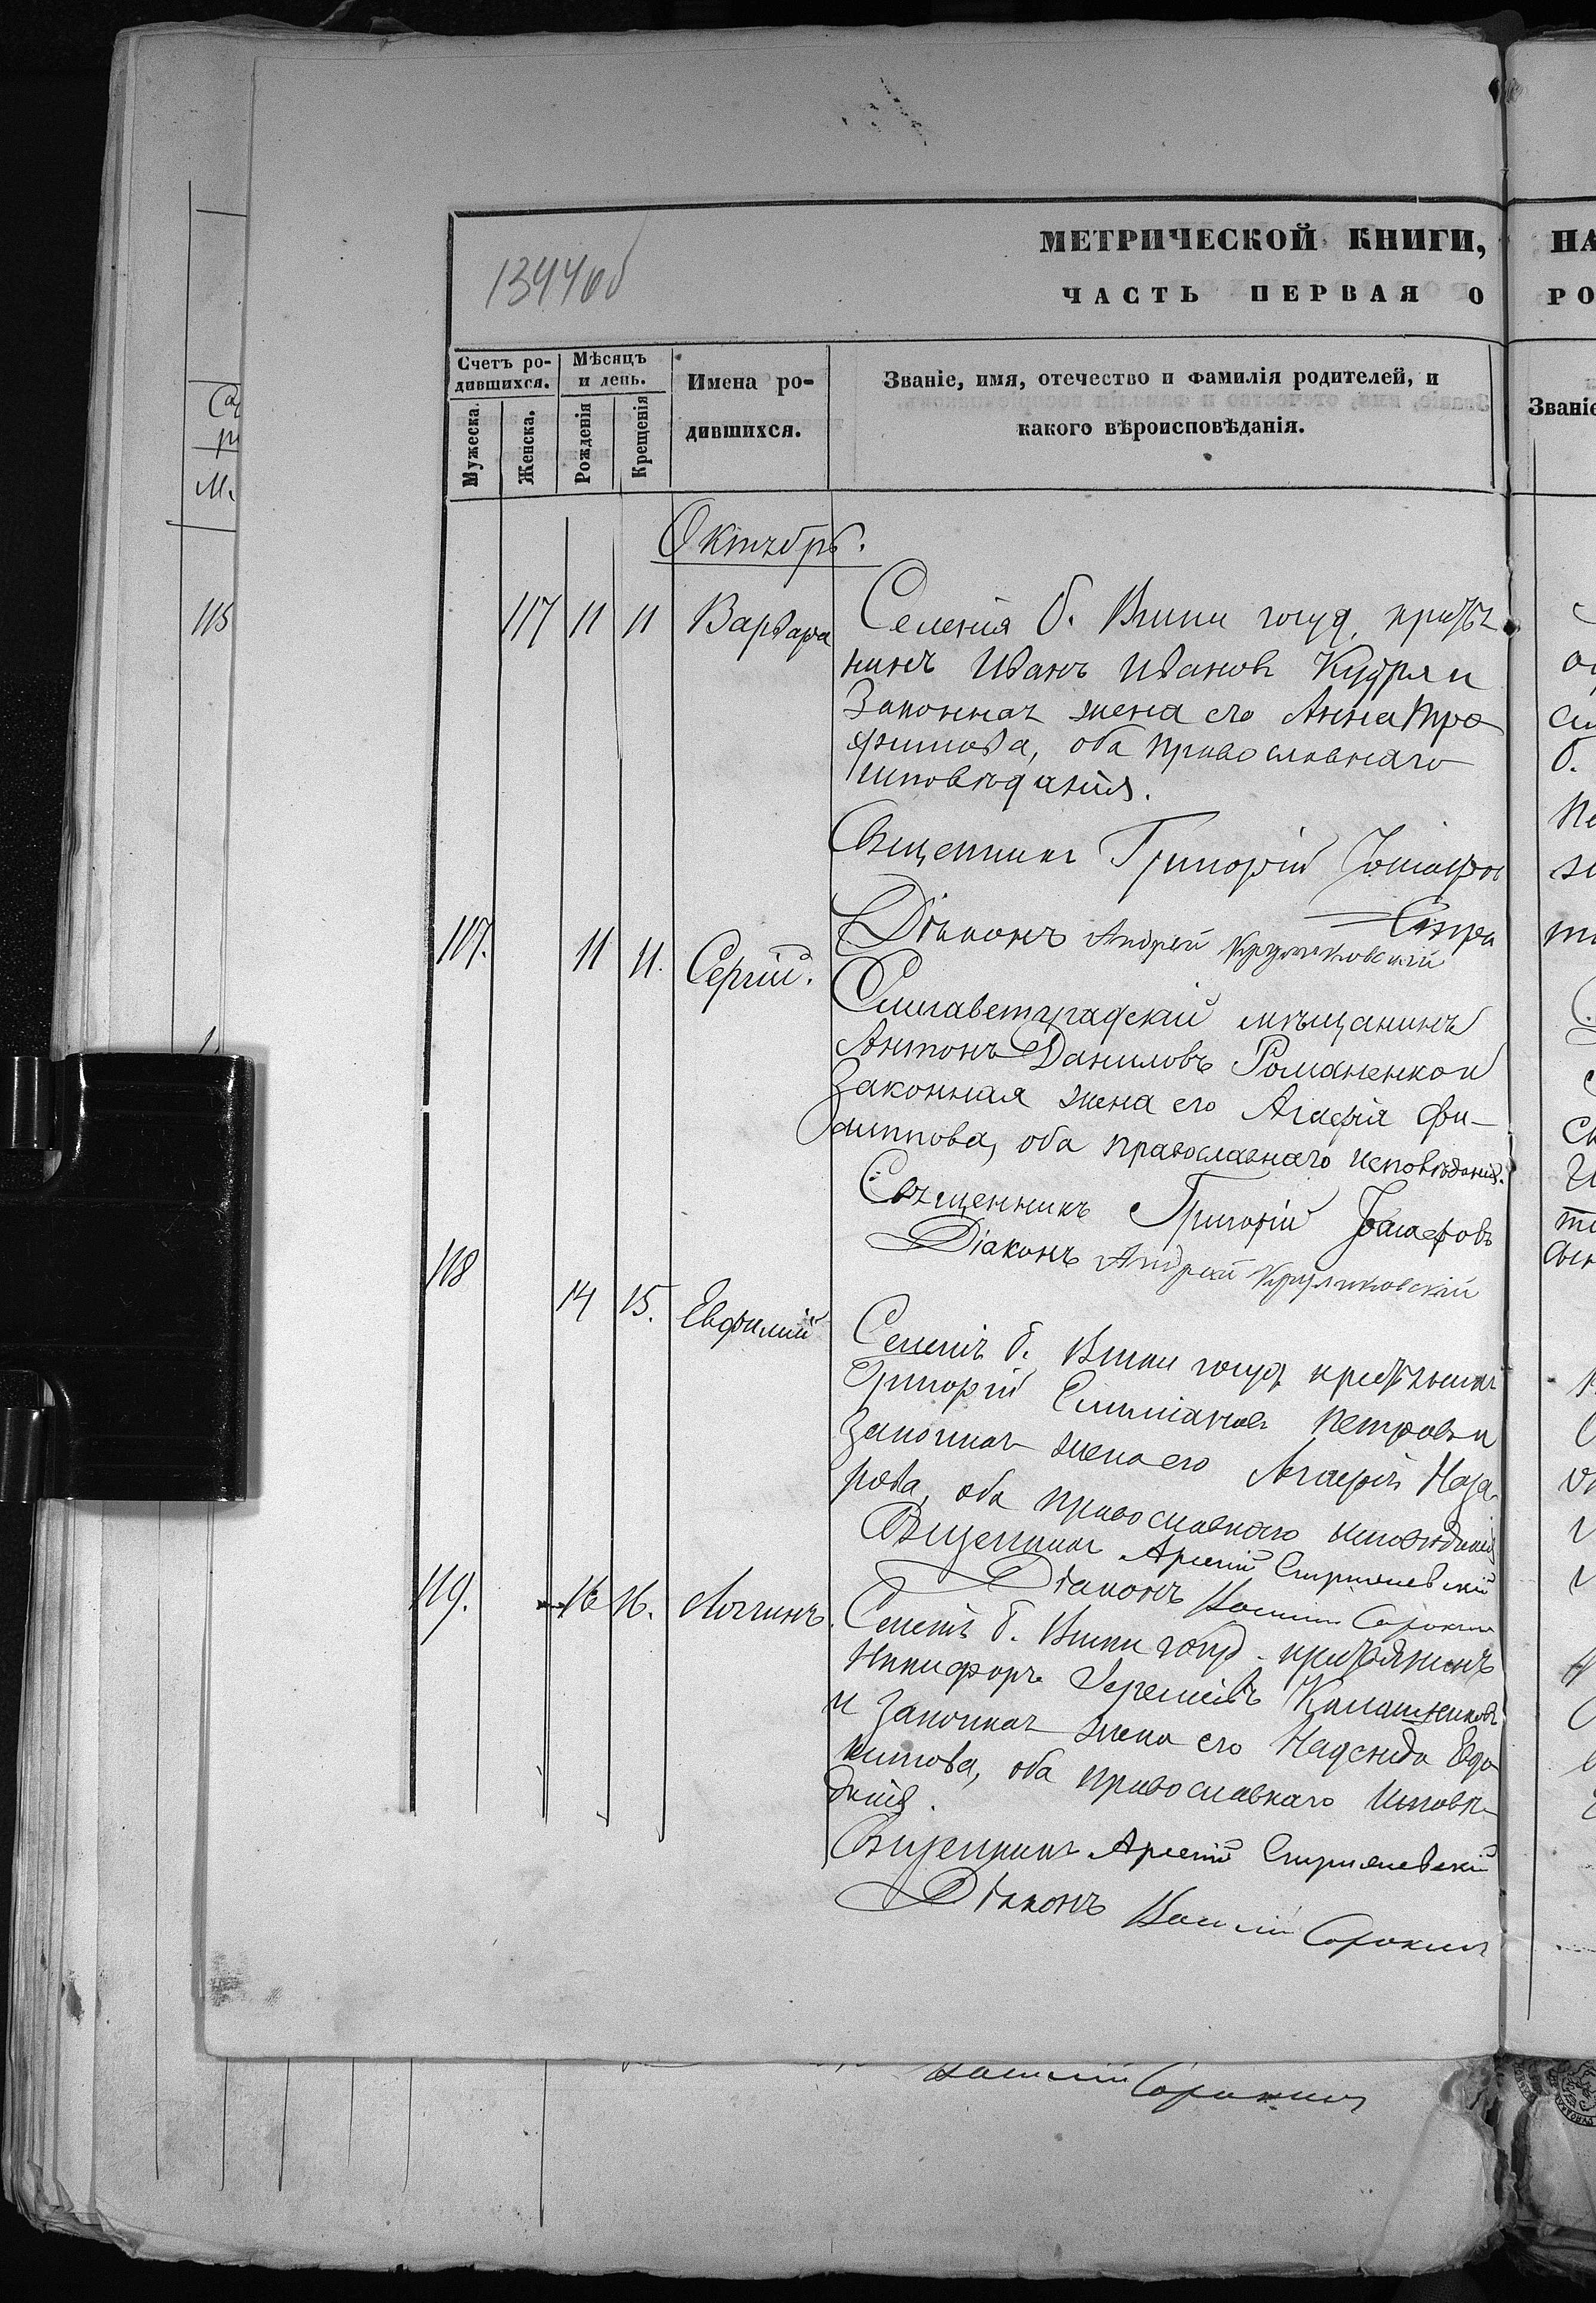 1344 об
МЕТРИЧЕСКОЙ КНИГИ,
ЧАСТЬ ПЕРВАЯ О
НА
РО
Счетъ ро-
дившихся.
Мѣсяцъ
и день.
Мужеска.
Женска.
Рожденія
Крещенія
Имена ро-
дившихся.
Званіе, имя, отечество и фамилія родителей, и
какого вѣроисповѣданія.
Званіе
Октябрь.
117 11 11 Варвара Селенія Б. Виски госуд. крестья
нинъ Иванъ Ивановъ Кудря и
Законная жена его Анна Тро
фимова, оба православнаго
исповѣданія.
Священникъ Григорій
Діаконъ Андрей
117. 11 11. Сергій. Елисаветградскій мѣщанинъ
Антонъ Даниловъ Романенко и
Законная жена его Агафія Фи-
липпова, оба православнаго исповѣданія.
Священникъ Григорій
Діаконъ Андрей
118 14 15. Евфимій Селенія Б. Виски госуд. крестьянинъ
Григорій Емиліановъ Петровъ и
Законная жена его Агафія Наза
рова, оба православнаго исповѣданія
Священникъ Арсеній
Діаконъ Василій Сорокинъ
119. 16 16. Логгинъ. Селенія Б. Виски госуд. крестьянинъ
Никифоръ Калашниковъ
и Законная жена его Надежда Евдо
кимова, оба православнаго исповѣ-
данія.
Священникъ Арсеній
Діаконъ Василій Сорокинъ
Василій Сорокинъ
115